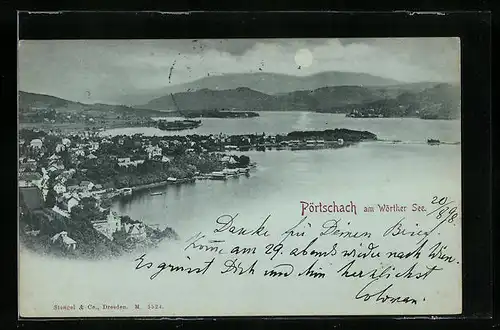 Pörtschach am Wörther See.
20/8 98
Danke für Deinen Brief.
Komme am 29. abends wieder nach Wien.
Es grüsst Dich und ihn herzlichst
Coloman
Stengel & Co., Dresden. M. 5524.